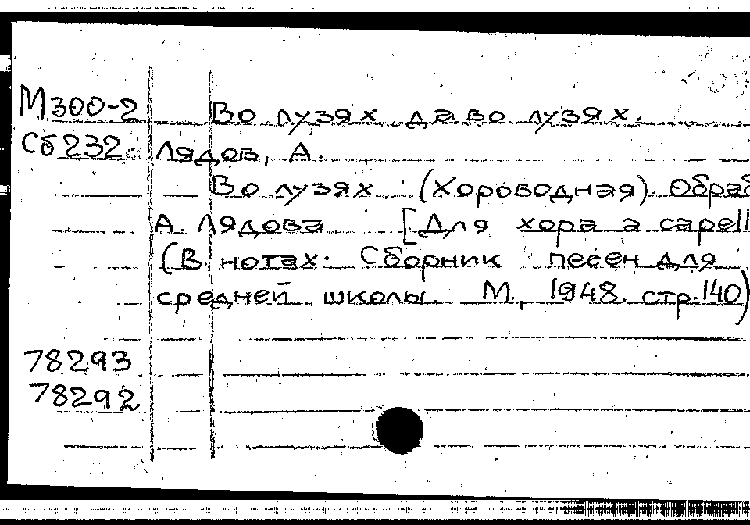 М300-2 Во лузях да во лузях.
Сб232 Лядов, А.
Во лузях (Хороводная). Обраб
А. Лядова [Для хора a capell
(В нотах: Сборник песен для
средней школы. М., 1948. стр.140)
78293
78292